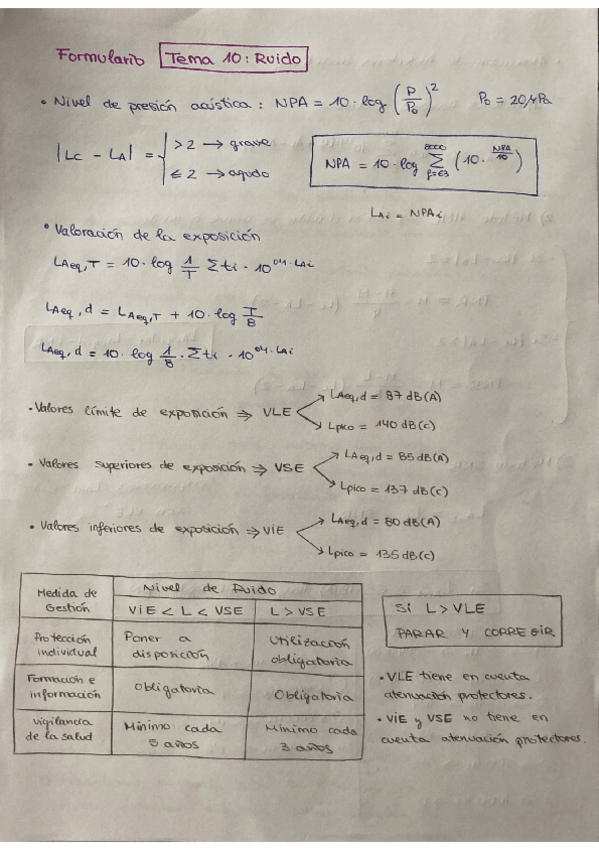 Formulario Tema 10: Ruido
• Nivel de presión acústica: NPA = 10 · log (P/P₀)² P₀ = 20 μPa
|LC - LA| = { > 2 → grave
≤ 2 → agudo
NPA = 10 · log Σ_{f=63}^{8000} (10 · ^{NPA/10})
LAi = NPAi
• Valoración de la exposición
LAeq,T = 10 · log 1/T Σ ti · 10^{0'1 · LAi}
LAeq,d = LAeq,T + 10 · log T/8
LAeq,d = 10 · log 1/8 · Σ ti · 10^{0'1 · LAi}
• Valores límite de exposición ⇒ VLE → LAeq,d = 87 dB(A)
→ Lpico = 140 dB(C)
• Valores superiores de exposición ⇒ VSE → LAeq,d = 85 dB(A)
→ Lpico = 137 dB(C)
• Valores inferiores de exposición ⇒ ViE → LAeq,d = 80 dB(A)
→ Lpico = 135 dB(C)
Medida de Gestión
Nivel de Ruido
ViE < L < VSE
L > VSE
Protección individual
Poner a disposición
Utilización obligatoria
Formación e información
Obligatoria
Obligatoria
Vigilancia de la salud
Mínimo cada 5 años
Mínimo cada 3 años
Si L > VLE
PARAR Y CORREGIR
• VLE tiene en cuenta
atenuación protectores.
• ViE y VSE no tiene en
cuenta atenuación protectores.